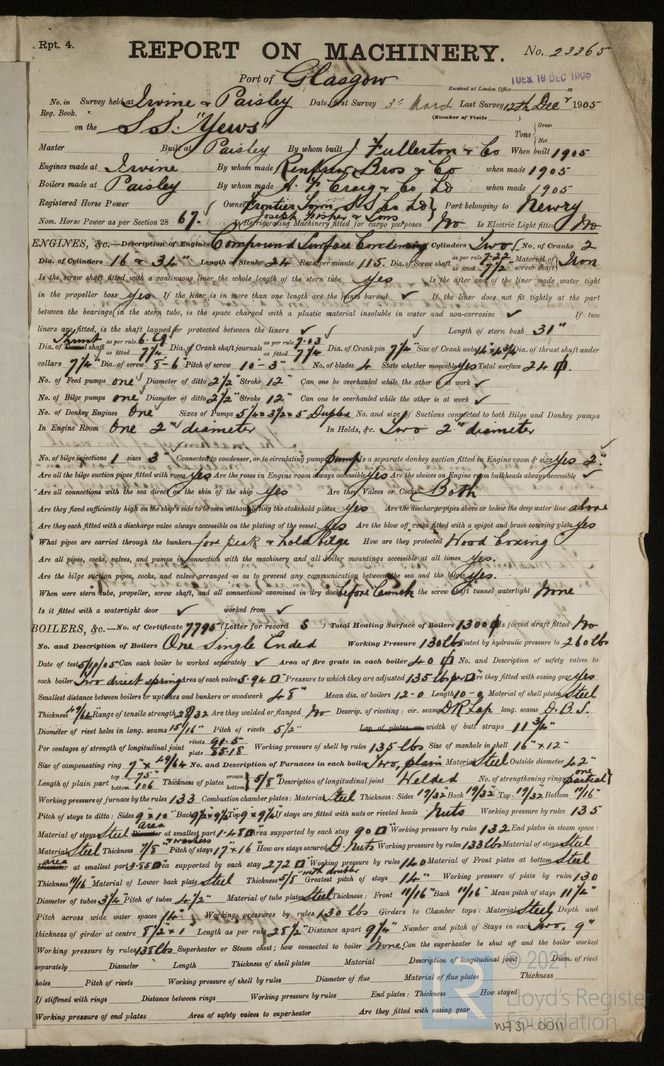 Rpt. 4. REPORT ON MACHINERY. No. 23365
Port of Glasgow
Received at London Office TUES 19 DEC 1905
No. in Survey held at Irvine & Paisley Date, first Survey 3rd Last Survey 12th Decr 1905
Reg. Book. (Number of Visits)
on the S.S. "Yews" Tons Gross Net
Master Built at Paisley By whom built J Fullerton & Co When built 1905
Engines made at Irvine By whom made Bros & Co when made 1905
Boilers made at Paisley By whom made A. F. Craig & Co. Ld when made 1905
Registered Horse Power Owners Frontier Town S.S. Co Ld Port belonging to Newry
Joseph Fisher & Sons
Nom. Horse Power as per Section 28 67. Is Refrigerating Machinery fitted for cargo purposes No Is Electric Light fitted No
ENGINES, &c.—Description of Engines Compound Surface Condensing Cylinders Two No. of Cranks 2
Dia. of Cylinders 16 & 34" Length of Stroke 24 Revs. per minute 115 Dia. of Screw shaft as per rule 7.22 as fitted 7½" Material of screw shaft Iron
Is the screw shaft fitted with a continuous liner the whole length of the stern tube yes Is the after end of the liner made water tight
in the propeller boss yes If the liner is in more than one length are the joints burned ✓ If the liner does not fit tightly at the part
between the bearings in the stern tube, is the space charged with a plastic material insoluble in water and non-corrosive ✓ If two
liners are fitted, is the shaft lapped or protected between the liners ✓ Length of stern bush 31"
Dia. of Thrust shaft as per rule 6.69 as fitted 7¼ Dia. of Crank shaft journals as per rule 7.03 as fitted 7¼ Dia. of Crank pin 7¼" Size of Crank webs Dia. of thrust shaft under
collars 7¼" Dia. of screw 8-6 Pitch of screw 10-3" No. of blades 4 State whether moveable yes Total surface 24
No. of Feed pumps one Diameter of ditto 2½" Stroke 12" Can one be overhauled while the other is at work ✓
No. of Bilge pumps one Diameter of ditto 2½" Stroke 12" Can one be overhauled while the other is at work ✓
No. of Donkey Engines One Sizes of Pumps 5¼ x 3½ x 5 Duplex No. and size of Suctions connected to both Bilge and Donkey pumps
In Engine Room One 2" diameter In Holds, &c. Two 2" diameter
No. of bilge injections 1 sizes 3" Connected to condenser, or to circulating pump pump Is a separate donkey suction fitted in Engine room & size yes 2"
Are all the bilge suction pipes fitted with roses yes Are the roses in Engine room always accessible yes Are the sluices on Engine room bulkheads always accessible ✓
Are all connections with the sea direct on the skin of the ship yes Are they Valves or Cocks Both
Are they fixed sufficiently high on the ship's side to be seen without lifting the stokehold plates yes Are the discharge pipes above or below the deep water line above
Are they each fitted with a discharge valve always accessible on the plating of the vessel yes Are the blow off cocks fitted with a spigot and brass covering plate yes
What pipes are carried through the bunkers fore peak & hold bilge How are they protected Wood boxing
Are all pipes, cocks, valves, and pumps in connection with the machinery and all boiler mountings accessible at all times yes.
Are the bilge suction pipes, cocks, and valves arranged so as to prevent any communication between the sea and the bilges yes.
When were stern tube, propeller, screw shaft, and all connections examined in dry dock before launch Is the screw shaft tunnel watertight None
Is it fitted with a watertight door ✓ worked from ✓
BOILERS, &c.—No. of Certificate 7795 (Letter for record S) Total Heating Surface of Boilers 1300 Is forced draft fitted No
No. and Description of Boilers One Single Ended Working Pressure 130lbs Tested by hydraulic pressure to 260 lbs
Date of test Can each boiler be worked separately ✓ Area of fire grate in each boiler 40 No. and Description of safety valves to
each boiler Two direct spring Area of each 5.94 Pressure to which they are adjusted 135 lbs Are they fitted with easing gear yes
Smallest distance between boilers or uptakes and bunkers or woodwork 48" Mean dia. of boilers 12-0 Length 10-0 Material of shell plates Steel
Thickness 29/64 Range of tensile strength 28/32 Are they welded or flanged No Descrip. of riveting: cir. seams D R Lap long. seams D.B.S.
Diameter of rivet holes in long. seams 15/16" Pitch of rivets 5½" Lap of plates or width of butt straps 11¾"
Per centages of strength of longitudinal joint rivets plate Working pressure of shell by rules 135 lbs Size of manhole in shell 16" x 12"
Size of compensating ring No. and Description of Furnaces in each boiler Two, plain Material Steel Outside diameter 42"
Length of plain part top 75" bottom 106 Thickness of plates crown bottom 5/8" Description of longitudinal joint Welded No. of strengthening rings one partial
Working pressure of furnace by the rules 133 Combustion chamber plates: Material Steel Thickness: Sides 19/32 Back 19/32 Top 19/32 Bottom 11/16"
Pitch of stays to ditto: Sides 9 x 10" Back Top If stays are fitted with nuts or riveted heads Nuts Working pressure by rules 135
Material of stays Steel area at smallest part 1.45 Area supported by each stay 90 Working pressure by rules 132 End plates in steam space:
Material Steel Thickness 7/8" Pitch of stays 17 x 16 How are stays secured D. Nuts Working pressure by rules 133 lbs Material of stays Steel
area at smallest part Area supported by each stay 272 Working pressure by rules 140 Material of Front plates at bottom Steel
Thickness 11/16 Material of Lower back plate Steel Thickness 5/8 with doubler Greatest pitch of stays 14" Working pressure of plate by rules 130
Diameter of tubes 3¼ Pitch of tubes 4½" Material of tube plates Steel Thickness: Front 11/16" Back 11/16" Mean pitch of stays 11¼"
Pitch across wide water spaces 14" Working pressures by rules 130 lbs Girders to Chamber tops: Material Steel Depth and
thickness of girder at centre 8½ x 1 Length as per rule 28½ Distance apart 9¼" Number and pitch of Stays in each Two, 9"
Working pressure by rules 138lbs Superheater or Steam chest; how connected to boiler None Can the superheater be shut off and the boiler worked
separately Diameter Length Thickness of shell plates Material Description of longitudinal joint Diam. of rivet
holes Pitch of rivets Working pressure of shell by rules Diameter of flue Material of flue plates Thickness
If stiffened with rings Distance between rings Working pressure by rules End plates: Thickness How stayed
Working pressure of end plates Area of safety valves to superheater Are they fitted with easing gear
© 2021
Lloyd's Register
Foundation
W731-0011